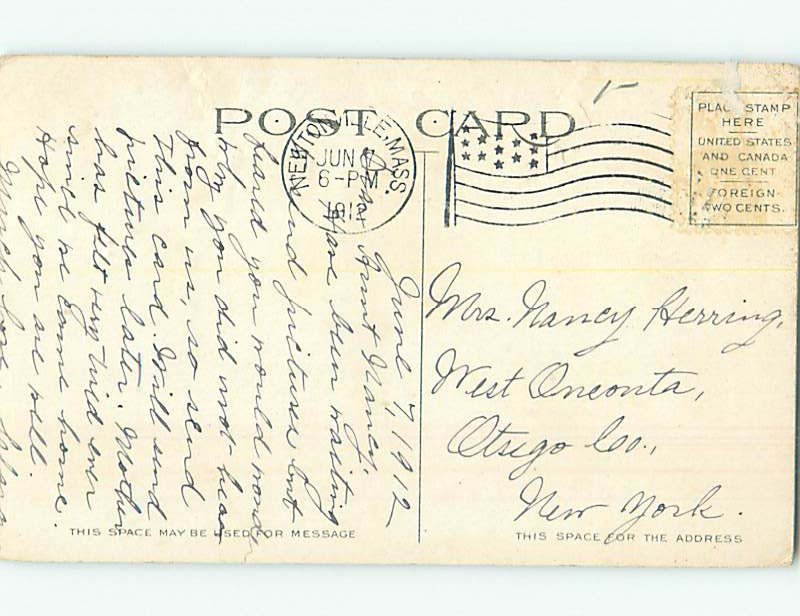 POST CARD
NEWTONVILLE, MASS.
JUN
6-PM
PLACE STAMP
HERE
UNITED STATES
AND CANADA
ONE CENT
FOREIGN-
TWO CENTS.
June 7, 1912
Dear Aunt Nancy,
Have been waiting
to send pictures but
feared you would wonder
why you did not hear
from us, so send
this card. Will send
pictures later. Mother
has felt very tired ever
since we came home.
Hope you are well.
Much love,
THIS SPACE MAY BE USED FOR MESSAGE
Mrs. Nancy Herring,
West Oneonta,
Otsego Co.,
New York.
THIS SPACE FOR THE ADDRESS